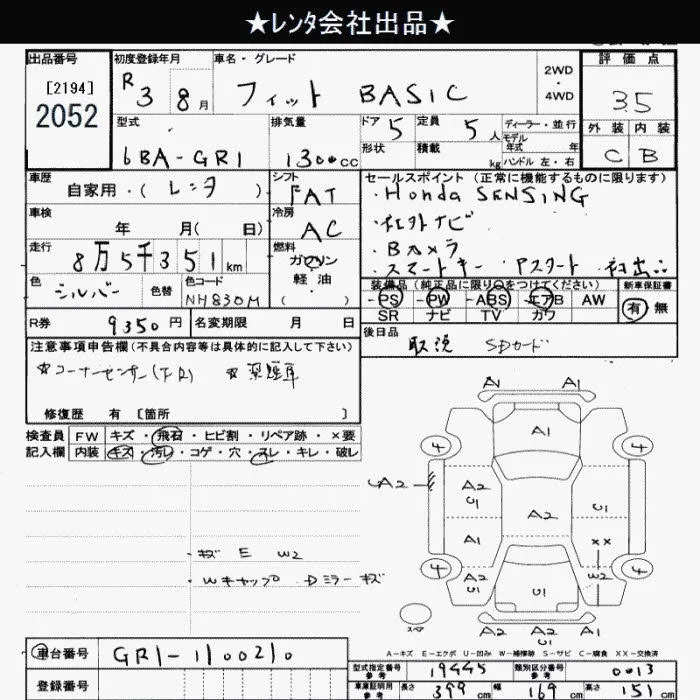 ★レンタ会社出品★
出品番号
[2194]
2052
初度登録年月
R 3 8月
車名・グレード
フィット BASIC
2WD
・
4WD
評価点
3.5
外装 内装
C B
型式
6BA-GR1
排気量
1300cc
ドア 5
定員 5人
ディーラー・並行
モデル
年式 年
ハンドル 左・右
形状
積載 kg
車歴
自家用・(レンタ)
シフト
FAT
セールスポイント (正常に機能するものに限ります)
・Honda SENSING
・社外ナビ
・Bカメラ
・スマートキー アスタート 初出品
車検
年 月( 日)
冷房
AC
走行
8万5千351km
燃料
ガソリン
軽油
色
シルバー
色替
色コード
NH830M
装備品(純正品に限り○をつけてください)
PS PW ABS エアB AW
SR ナビ TV カワ
新車保証書
有 無
R券 9350円
名変期限 月 日
後日品
取説 SDカード
注意事項申告欄(不具合内容等は具体的に記入して下さい)
☆コーナーセンサー(F.R) ☆禁煙車
修復歴 有 [箇所 ]
検査員
記入欄
FW キズ・飛石・ヒビ割・リペア跡・×要
内装 キズ・汚レ・コゲ・穴・スレ・キレ・破レ
A1 A1
A1
4 4
A2
A2 U1 U1
A2
A1 XX
W2
4 4
A2 U1 U1
A2 A2 A2
U1
スペア
・キズ E W2
・Wキャップ Dミラーキズ
A-キズ E-エクボ U-凹み W-補修跡 S-サビ C-腐食 XX-交換済
車台番号 GR1-1100210
登録番号
型式指定番号
参考
19445
類別区分番号
参考
0013
車庫証明用
参考
長さ 399cm 幅 169cm 高さ 151cm